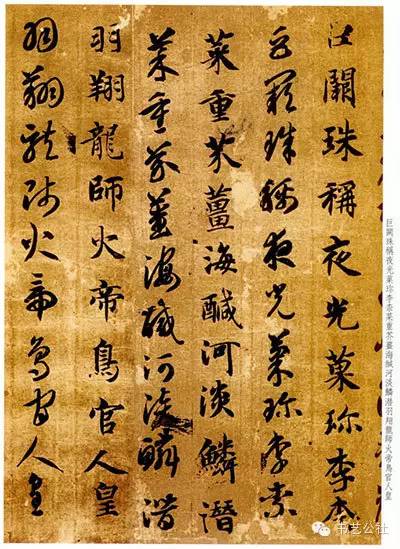 巨闕珠稱夜光菓珍李柰菜重芥薑海鹹河淡鱗潛羽翔龍師火帝鳥官人皇
巨闕珠稱夜光菓珍李柰
巨闕珠稱夜光菓珍李柰
菜重芥薑海醎河淡鱗潛
菜重芥薑海醎河淡鱗潛
羽翔龍師火帝鳥官人皇
羽翔龍師火帝鳥官人皇
书艺公社